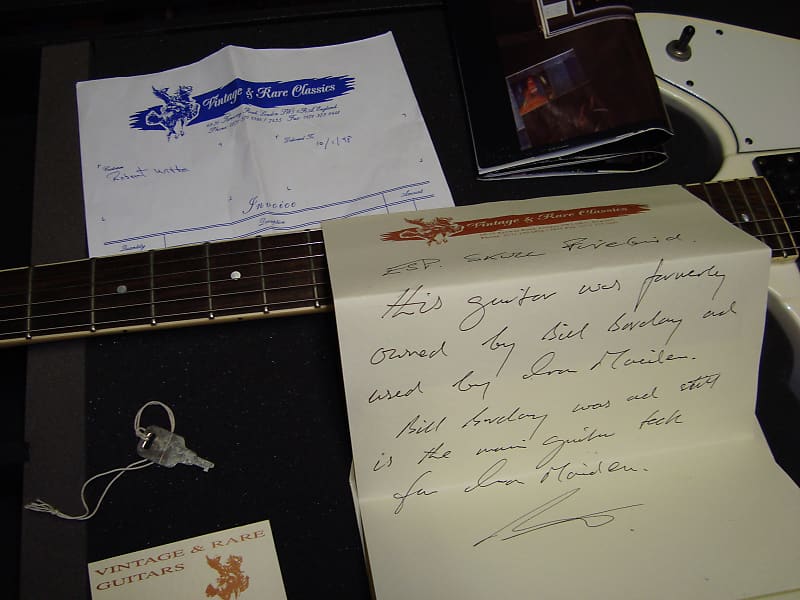 Vintage & Rare Classics
Invoice
Robert
10/1/98
Quantity
Amount
Vintage & Rare Classics
ESP. SKULL Firebird.
this guitar was formerly
owned by Bill Barclay ad
used by Iron Maiden.
Bill Barclay was ad still
is the main guitar tech
for Iron Maiden.
VINTAGE & RARE
GUITARS